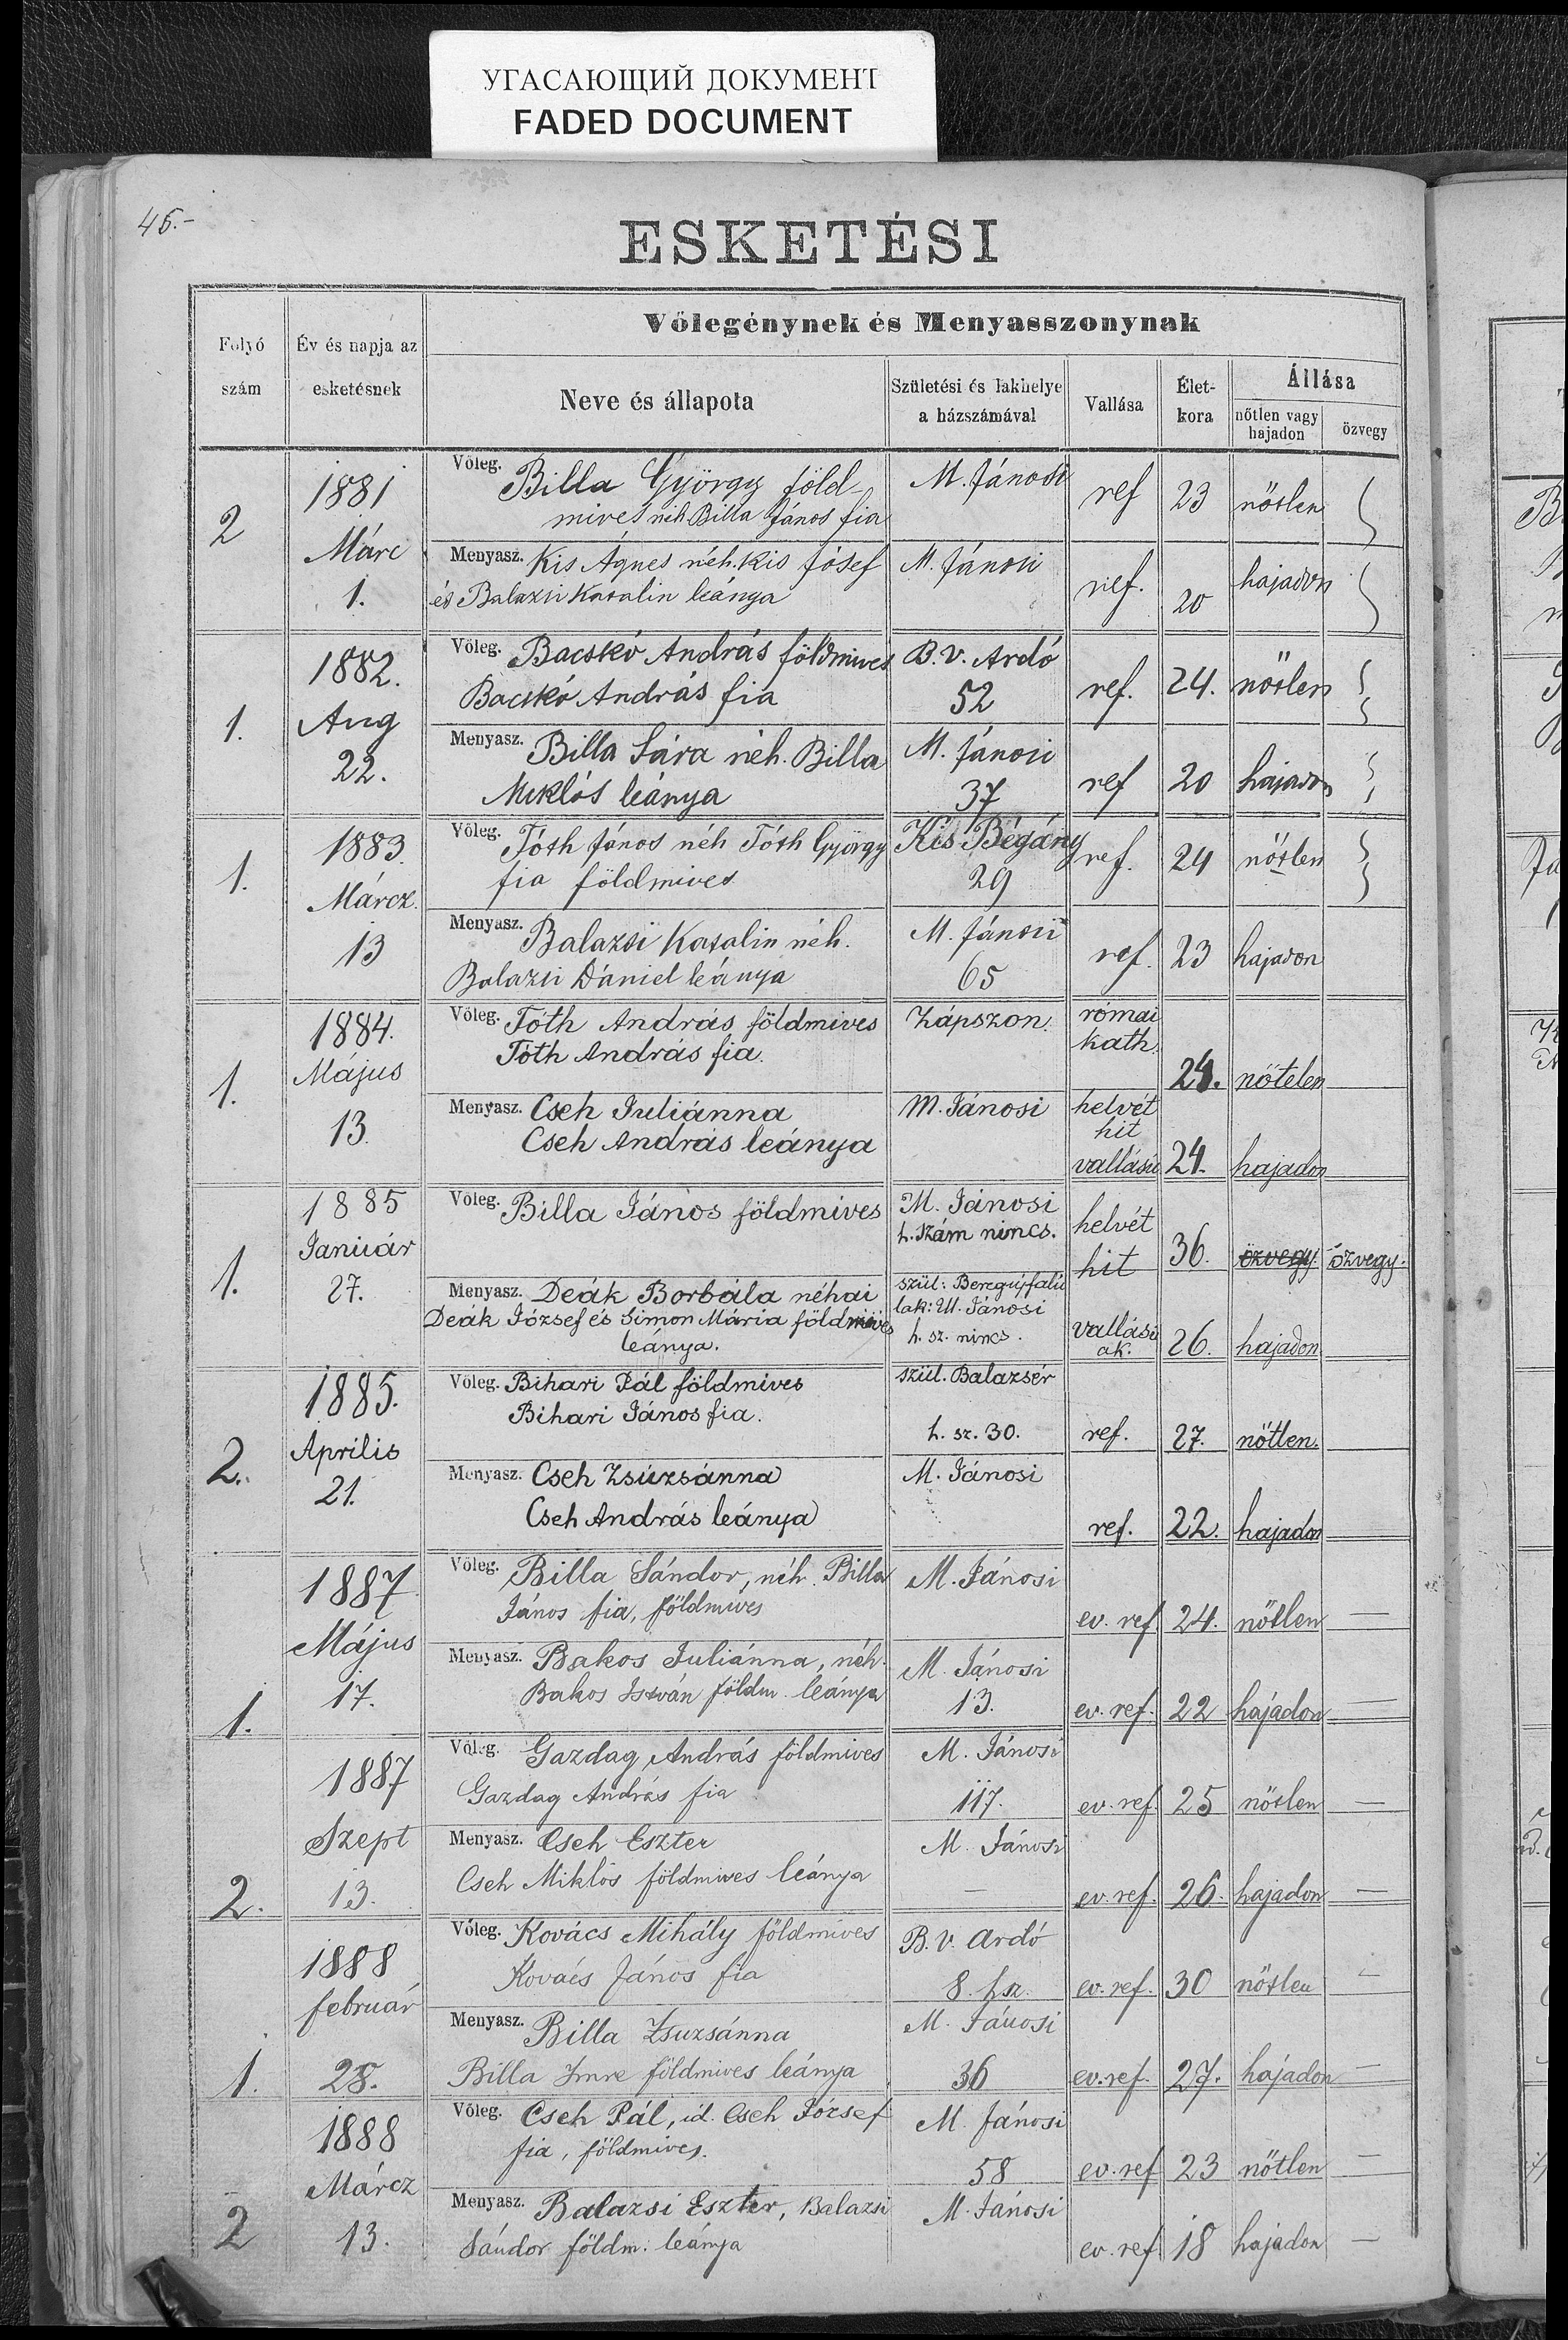 УГАСАЮЩИЙ ДОКУМЕНТ
FADED DOCUMENT
46.-
ESKETÉSI
Folyó szám
Év és napja az esketésnek
Vőlegénynek és Menyasszonynak
Neve és állapota
Születési és lakhelye a házszámával
Vallása
Élet-kora
Állása
nőtlen vagy hajadon
özvegy
2
1881
Márc
1.
Vőleg. Billa György föld-
mives néh Billa János fia
M. Jánosi
ref
23
nőtlen
Menyasz. Kis Ágnes néh. Kis Jósef
és Balazsi Katalin leánya
M. Jánosi
ref.
20
hajadon
1.
1882.
Aug
22.
Vőleg. Bacskó András földmives
Bacskó András fia
B. V. Ardó
52
ref.
24.
nőtlen
Menyasz. Billa Sára néh. Billa
Miklós leánya
M. Jánosi
37
ref
20
hajadon
1.
1883.
Márcz.
13
Vőleg. Tóth János néh Tóth György
fia földmives
Kis Bégány
29
ref.
24
nőtlen
Menyasz. Balazsi Katalin néh.
Balazsi Dániel leánya
M. Jánosi
65
ref.
23
hajadon
1.
1884.
Május
13.
Vőleg. Tóth András földmives
Tóth András fia.
Zápszon.
római
kath.
24.
nőtelen
Menyasz. Cseh Juliánna
Cseh András leánya
M. Jánosi
helvét
hit
vallású
24.
hajadon
1.
1885
Január
27.
Vőleg. Billa János földmives
M. Jánosi
h. szám nincs.
helvét
hit
36.
özvegy.
özvegy.
Menyasz. Deák Borbála néhai
Deák József és Simon Mária földmives
leánya.
szül: Beregujfalú
lak: M. Jánosi
h. sz. nincs.
vallású
ak.
26.
hajadon
2.
1885.
Április
21.
Vőleg. Bihari Pál földmives
Bihari János fia.
szül. Balazsér
h. sz. 30.
ref.
27.
nőtlen.
Menyasz. Cseh Zsúzsánna
Cseh András leánya
M. Jánosi
ref.
22.
hajadon
1.
1887
Május
17.
Vőleg. Billa Sándor, néh. Billa
János fia, földmives
M. Jánosi
ev. ref.
24.
nőtlen
—
Menyasz. Bakos Juliánna, néh.
Bakos István földm. leánya
M. Jánosi
13.
ev. ref.
22
hajadon
—
2.
1887
Szept
13.
Vőleg. Gazdag András földmives
Gazdag András fia
M. Jánosi
117.
ev. ref.
25
nőtlen
—
Menyasz. Cseh Eszter
Cseh Miklós földmives leánya
M. Jánosi
—
ev. ref.
26.
hajadon
—
1.
1888
február
28.
Vőleg. Kovács Mihály földmives
Kovács János fia
B. V. Ardó
8. hsz.
ev. ref.
30
nőtlen
—
Menyasz. Billa Zsuzsánna
Billa Imre földmives leánya
M. Jánosi
36
ev. ref.
27.
hajadon
—
2
1888
Márcz
13.
Vőleg. Cseh Pál, id. Cseh József
fia, földmives.
M. Jánosi
58
ev. ref
23
nőtlen
—
Menyasz. Balazsi Eszter, Balazsi
Sándor földm. leánya
M. Jánosi
ev. ref.
18
hajadon
—